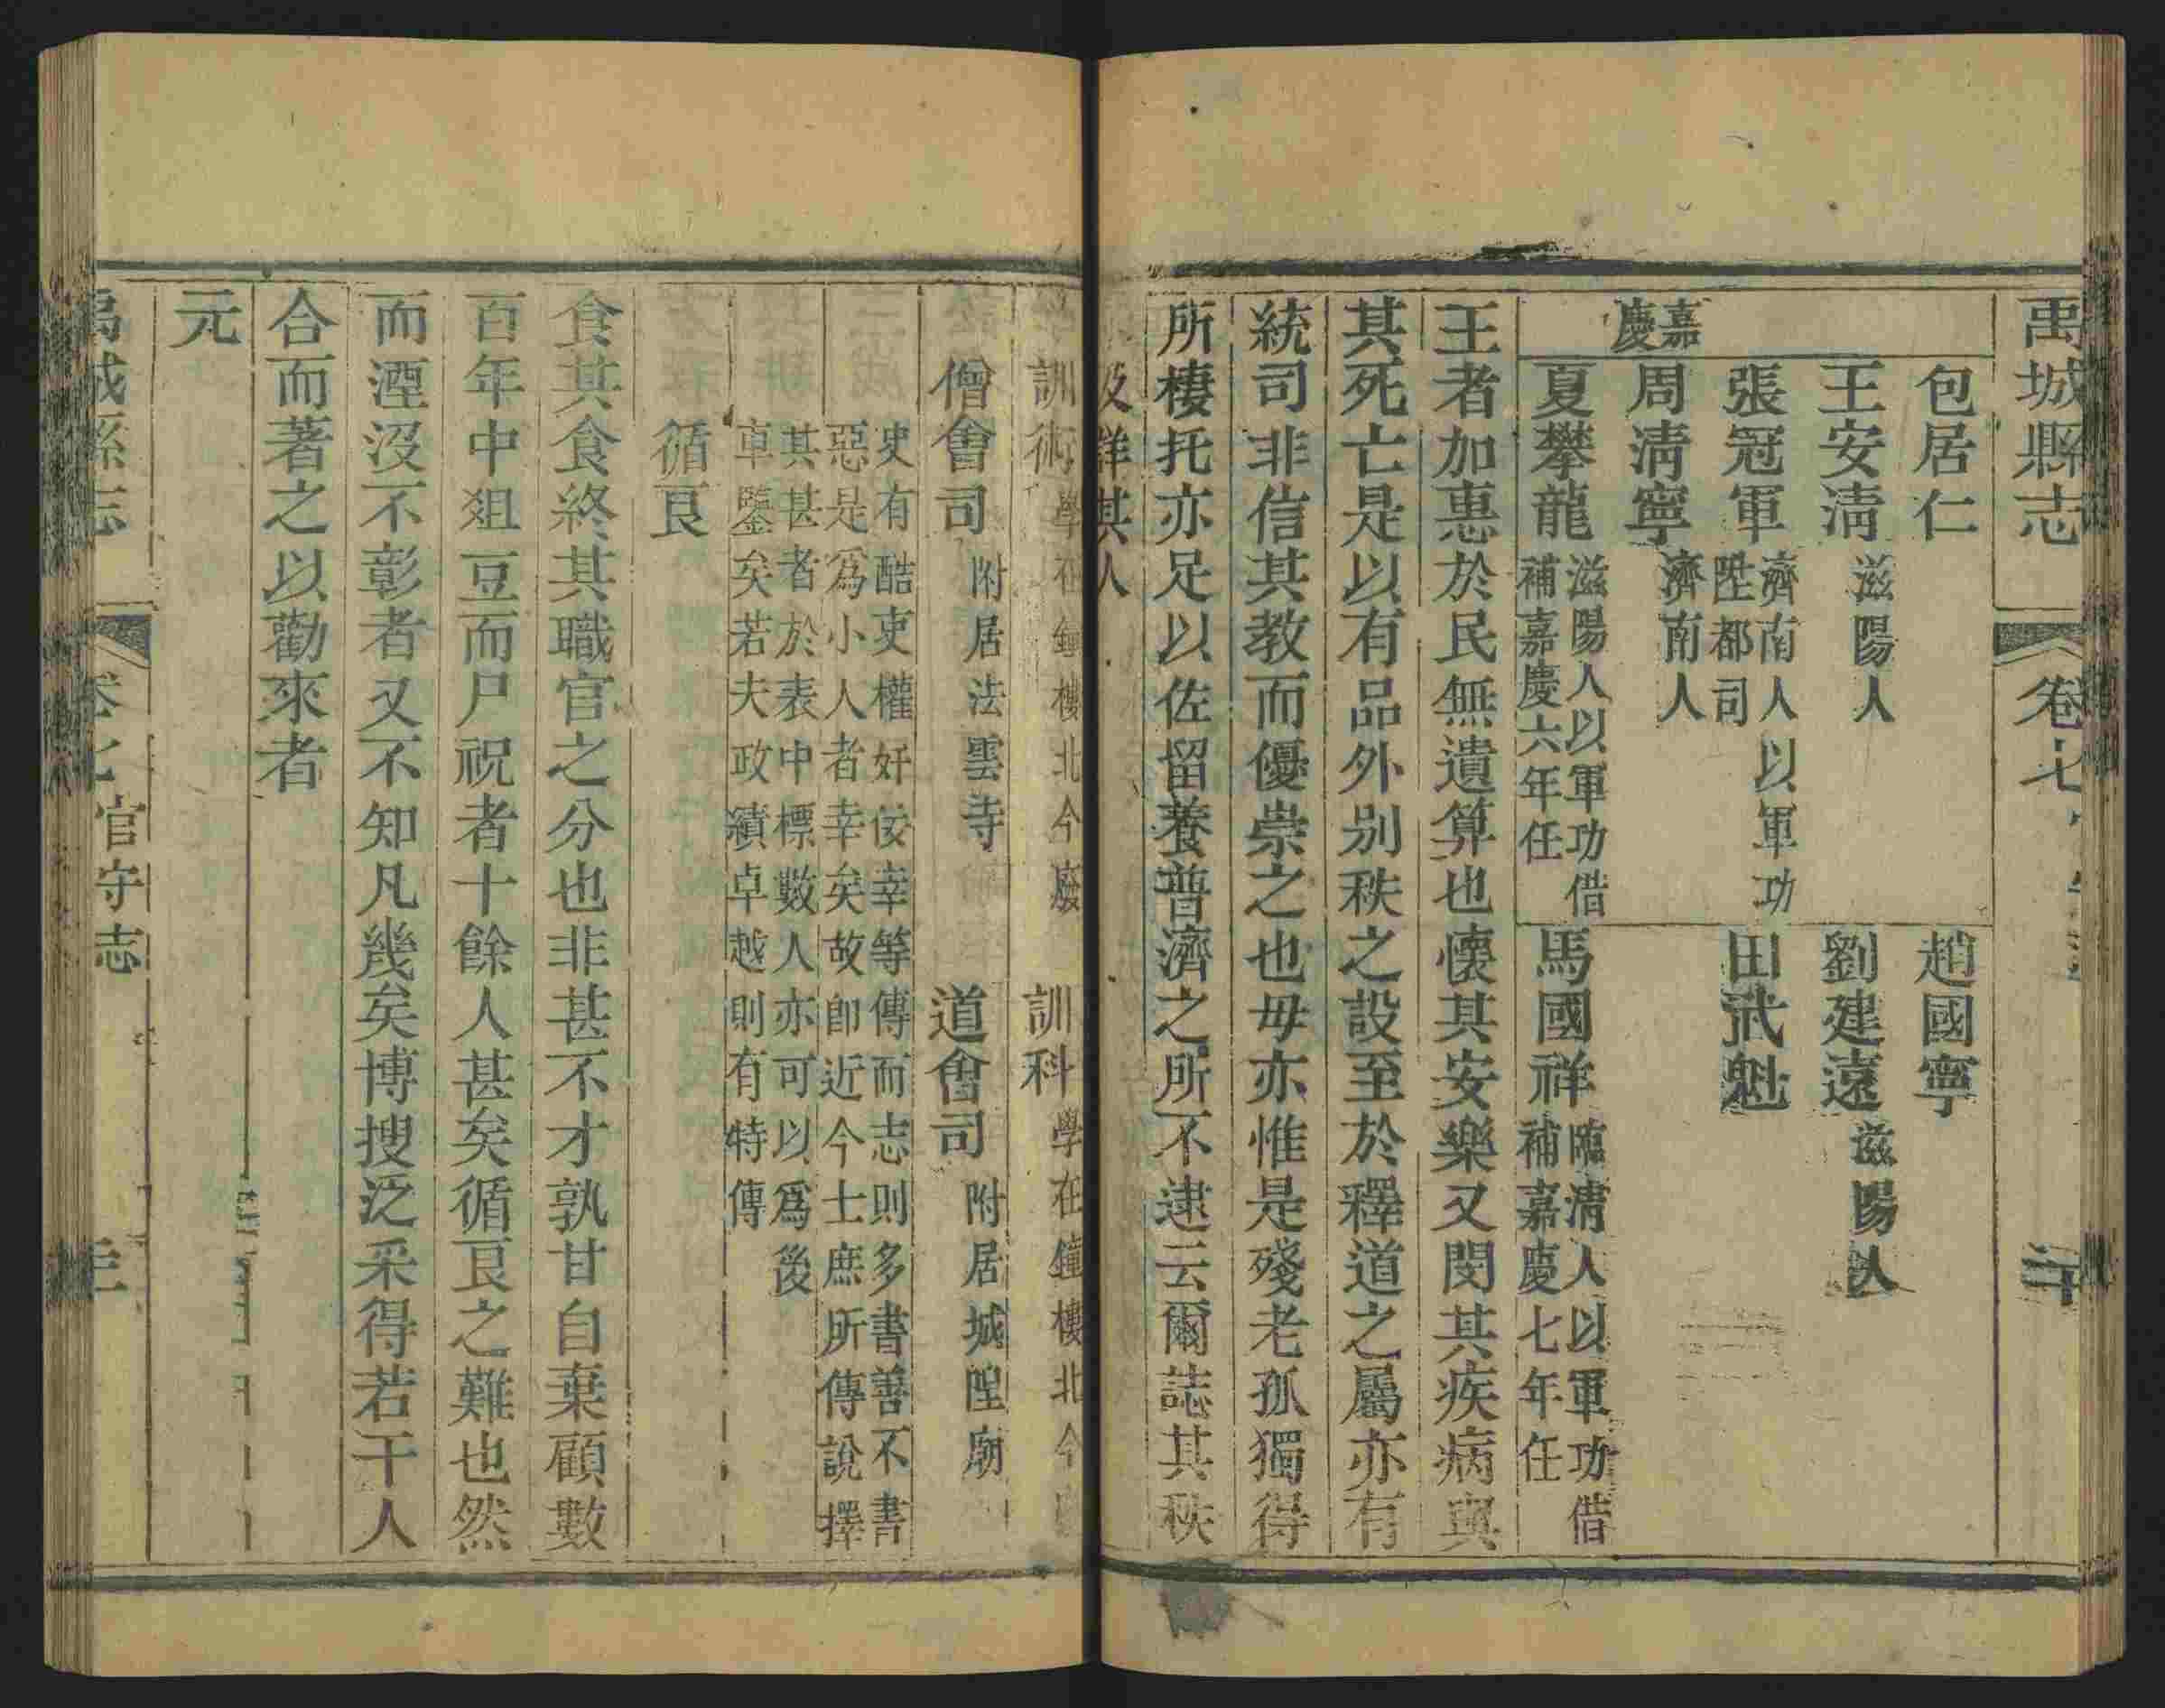 禹城縣志
卷七
二十
包居仁
趙國寧
王安淸 滋陽人
劉建遠 滋陽人
張冠軍 濟南人以軍功
陞都司
田武魁
嘉慶
周淸寧 濟南人
夏攀龍 滋陽人以軍功借
補嘉慶六年任
馬國祥 臨淸人以軍功借
補嘉慶七年任
王者加惠於民無遺算也懷其安樂又閔其疾病與
其死亡是以有品外别秩之設至於釋道之屬亦有
統司非信其教而優崇之也毋亦惟是殘老孤獨得
所棲托亦足以佐留養普濟之所不逮云爾誌其秩
及詳其人
訓術 學在鐘樓北今廢
訓科 學在鐘樓北今
僧會司 附居法雲寺
道會司 附居城隍廟
史有酷吏權奸佞幸等傳而志則多書善不書
惡是爲小人者幸矣故卽近今士庶所傳說擇
其甚者於表中標數人亦可以爲後
車鑒矣若夫政績卓越則有特傳
循良
食其食終其職官之分也非甚不才孰甘自棄顧數
百年中俎豆而尸祝者十餘人甚矣循良之難也然
而湮沒不彰者又不知凡幾矣博搜泛采得若干人
合而著之以勸來者
元
禹城縣志
官守志